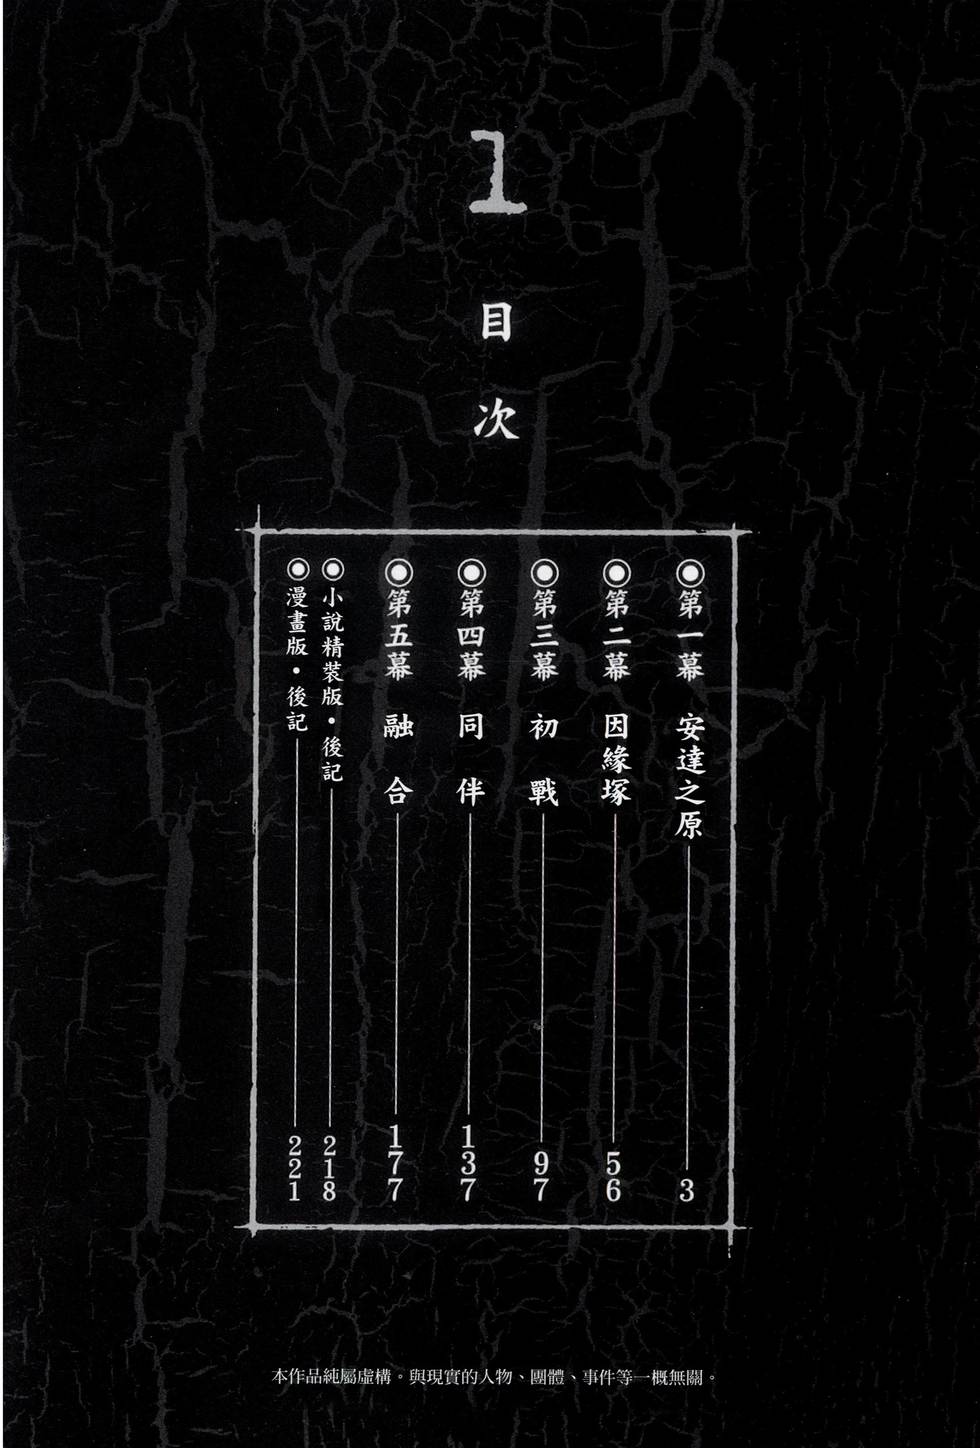 1
目次
◉第一幕 安達之原 3
◉第二幕 因緣塚 56
◉第三幕 初戰 97
◉第四幕 同伴 137
◉第五幕 融合 177
◉小說精裝版・後記 218
◉漫畫版・後記 221
本作品純屬虛構。與現實的人物、團體、事件等一概無關。